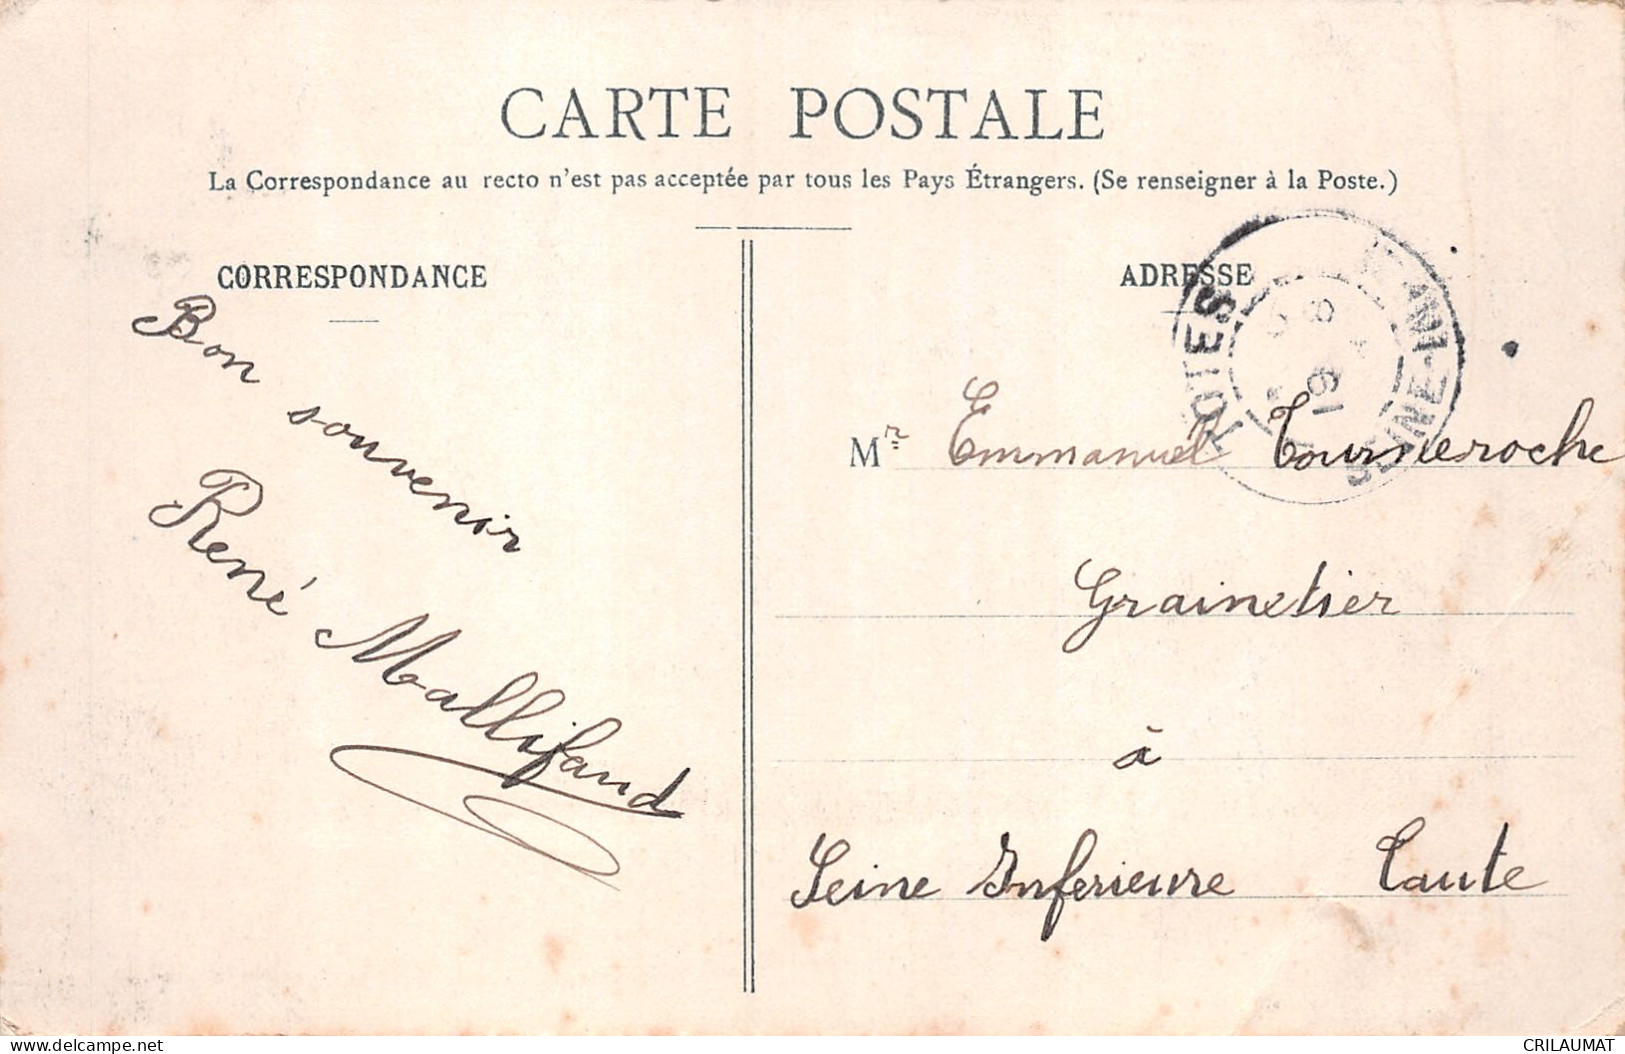 CARTE POSTALE
La Correspondance au recto n'est pas acceptée par tous les Pays Étrangers. (Se renseigner à la Poste.)
CORRESPONDANCE
Bon souvenir
René Mallifaud
ADRESSE
TOTES
SEINE-INF
Mr Emmanuel Tourneroche
Grainetier
à
Seine Inferieure
delcampe.net
CRILAUMAT